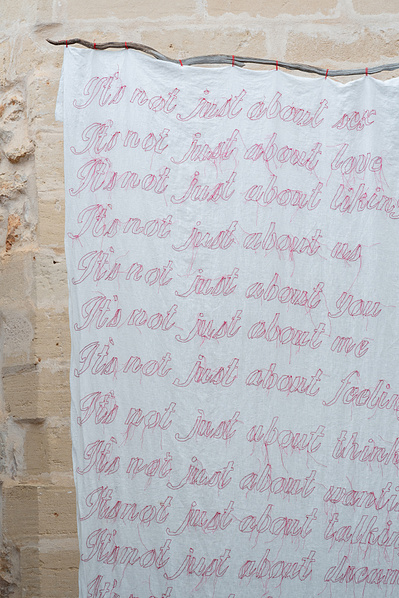 It's not just about sex
It's not just about love
It's not just about liking
It's not just about us
It's not just about you
It's not just about me
It's not just about feelin
It's not just about think
It's not just about wanti
Its not just about talkin
It's not just about dream
It's